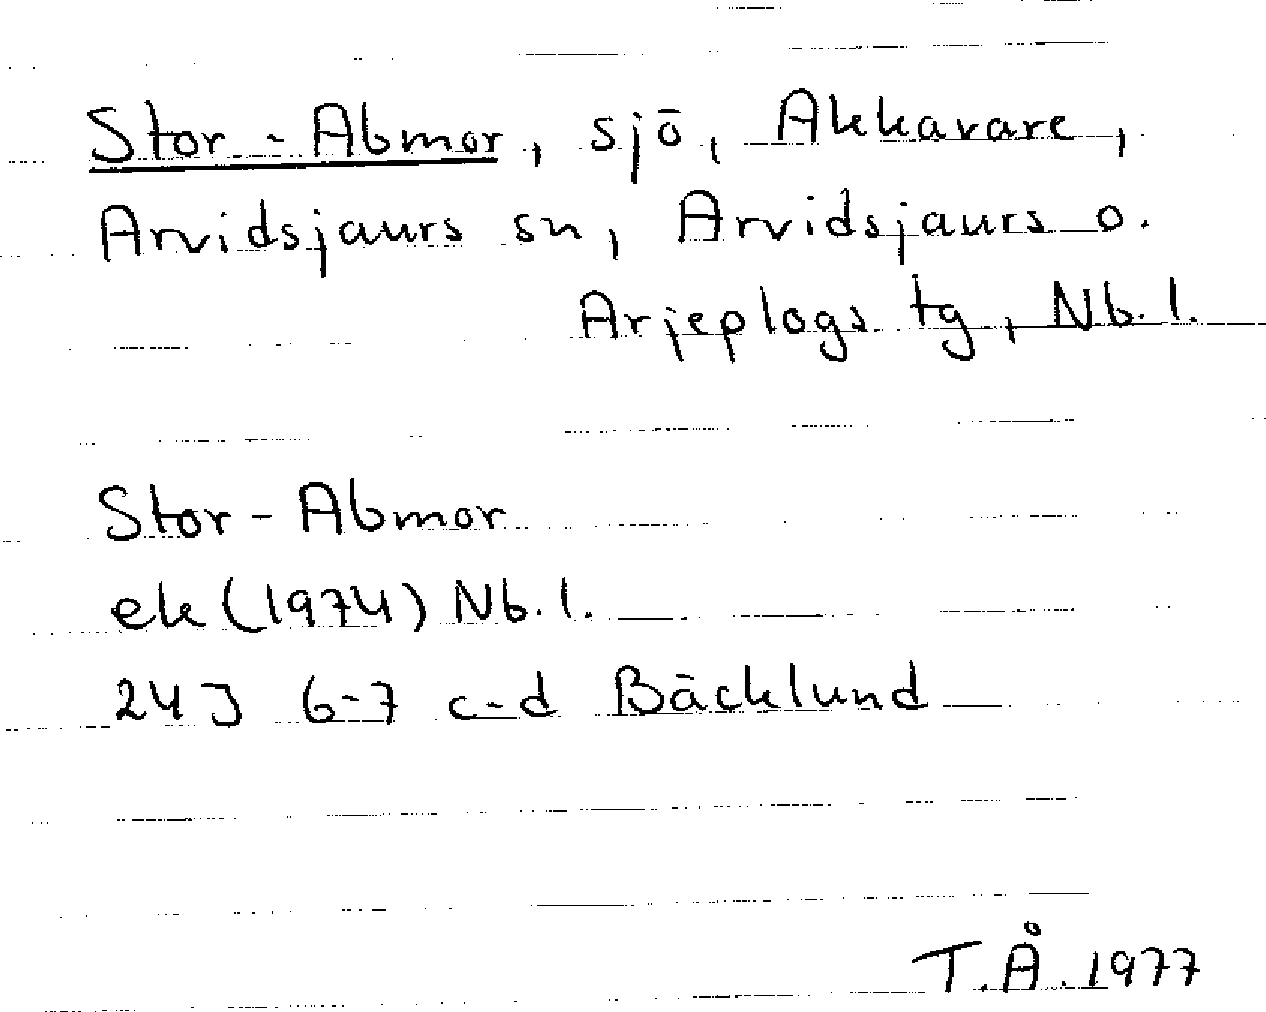 Stor-Abmor, sjö, Akkavare,
Arvidsjaurs sn, Arvidsjaurs o.
Arjeplogs tg, Nb. l.
Stor-Abmor
ek (1974) Nb. l.
24J 6-7 c-d Bäcklund
T.Å. 1977